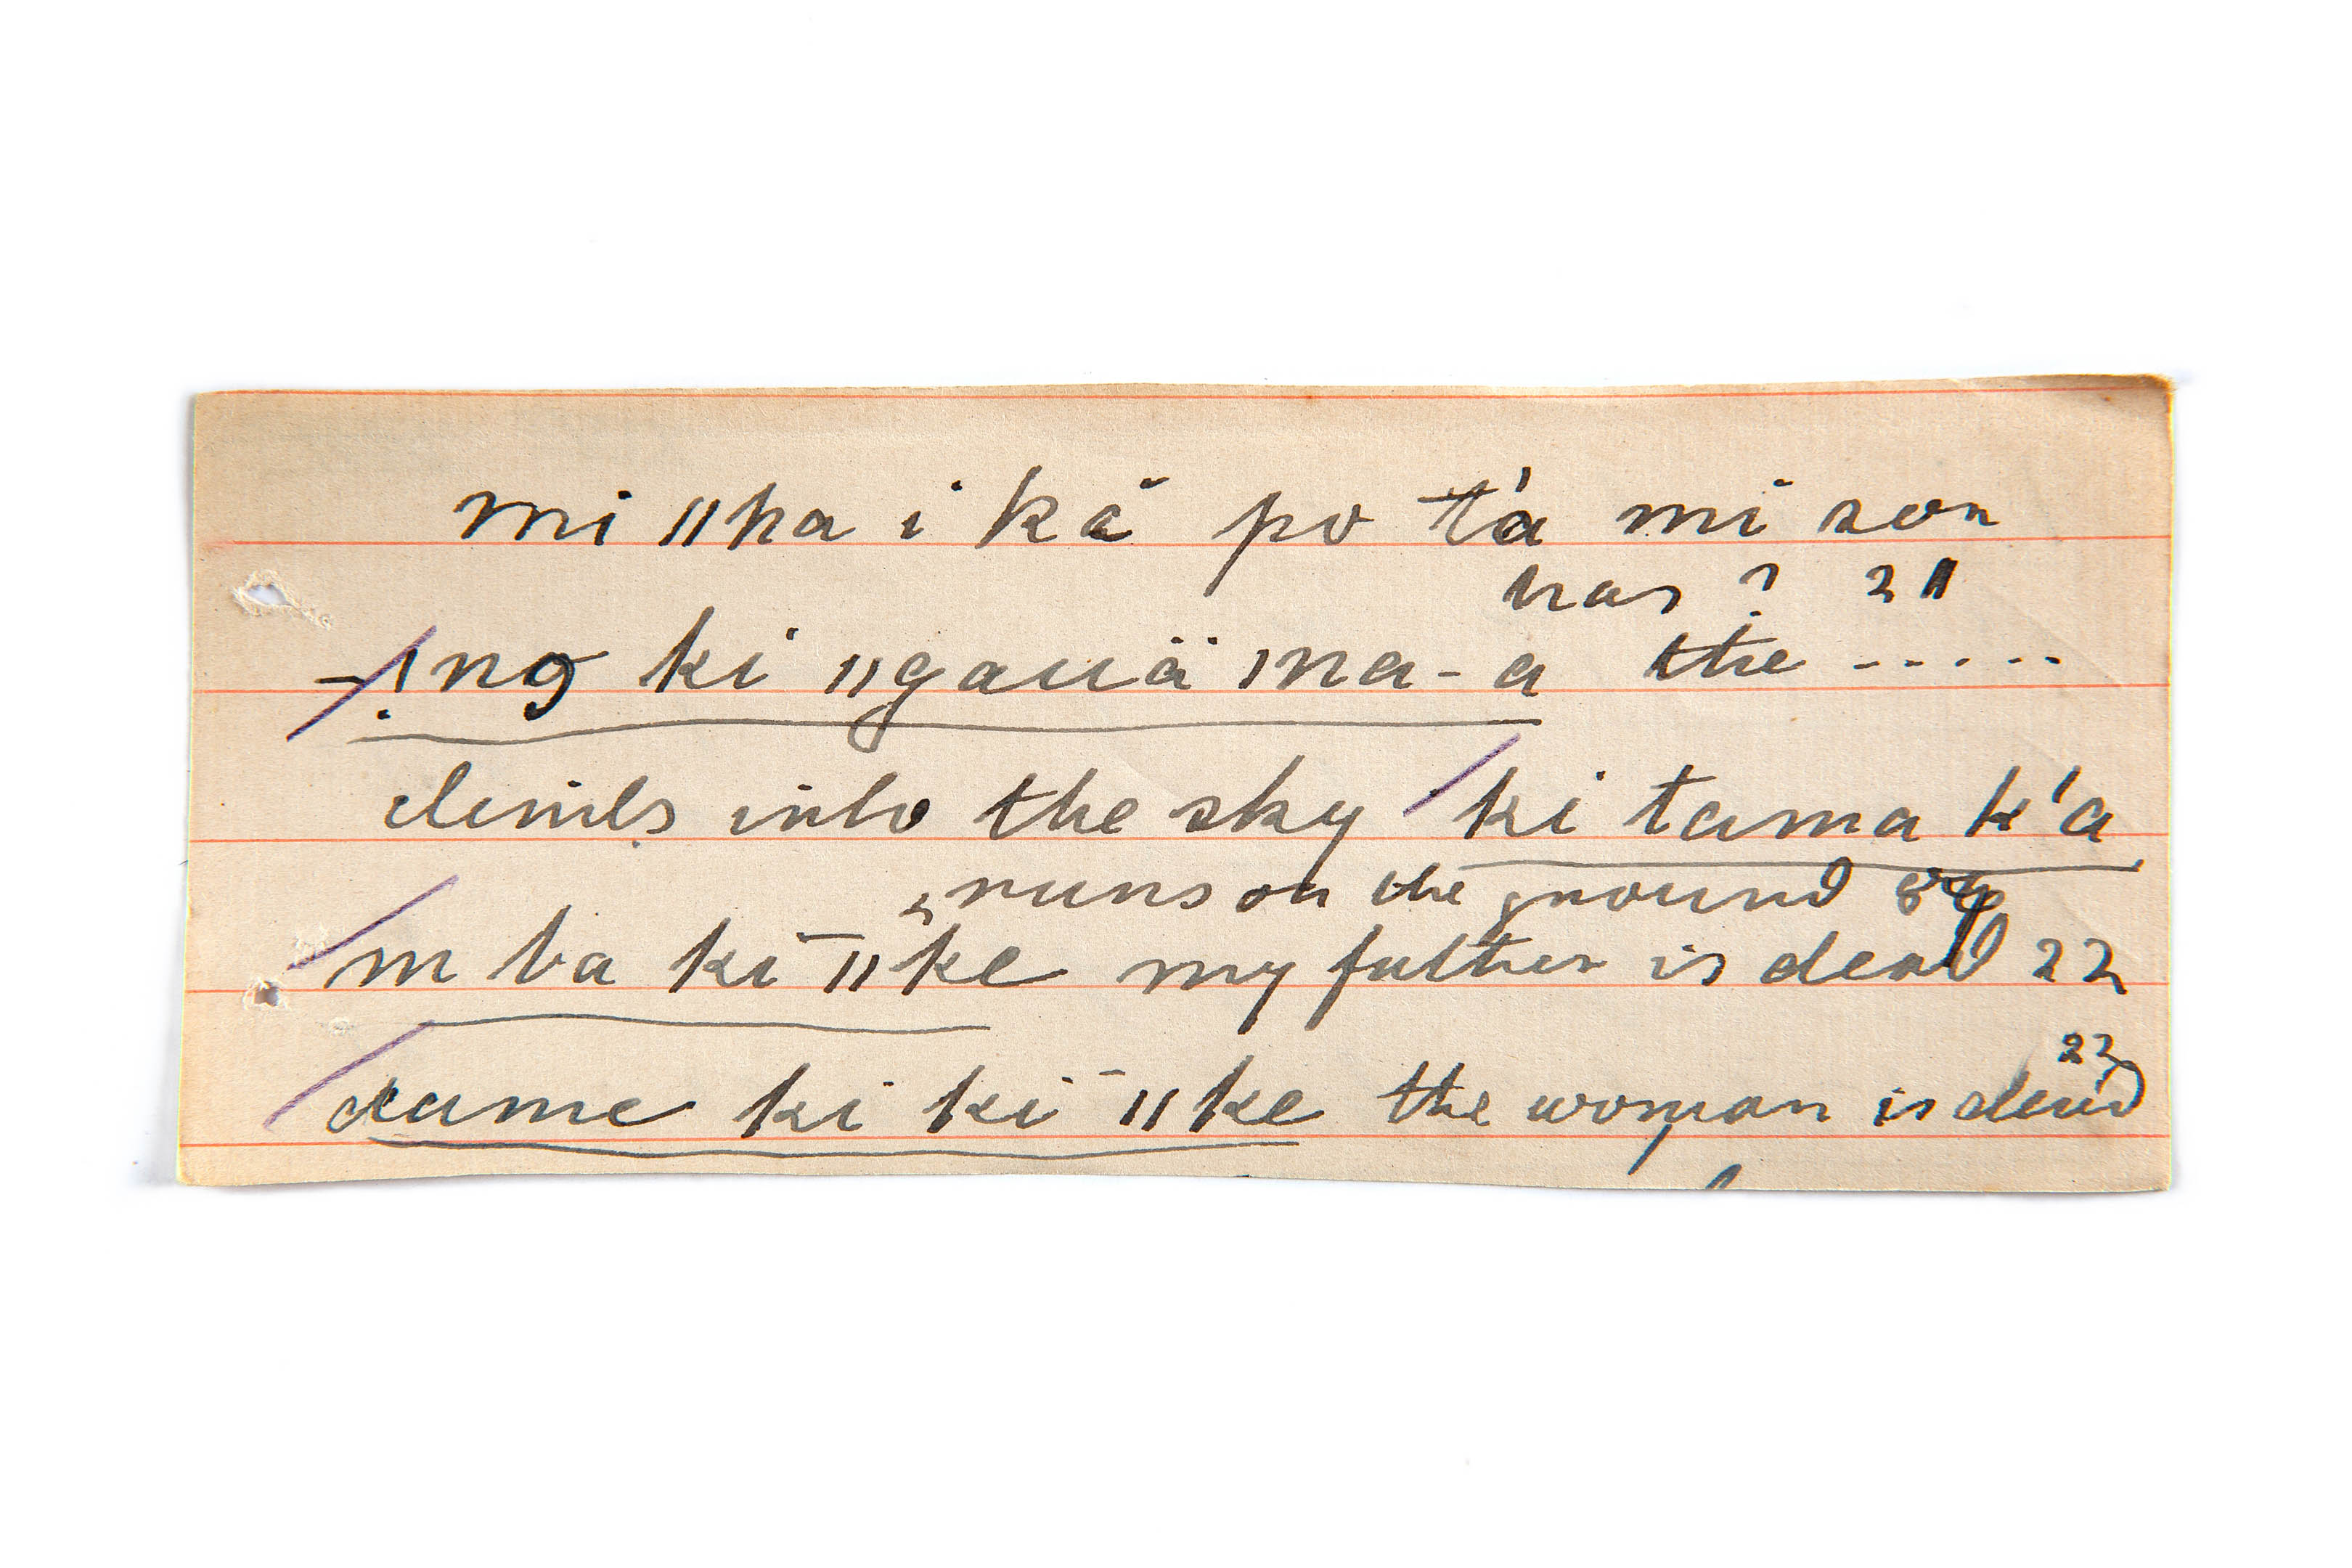 mi ǁha i kā po t'à mī son
has ? 21
ǃng ki ǁgauä ǀna-a the -----
climbs into the sky ki tama k'a
runs on the ground
m ba kī ǁke my father is dead 22
22
ǀame ki kī ǁke the woman is dead